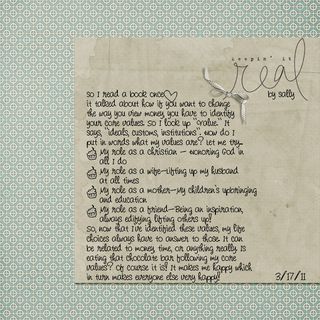 keepin' it
real
by sally
so I read a book once
it talked about how if you want to change
the way you view money, you have to identify
your core values. So I look up "value." It
says, "ideals, customs, institutions". How do I
put in words what my values are? Let me try...
My role as a christian - Honoring God in
all I do
My role as a wife-Lifting up my husband
at all times
My role as a mother-My children's upbringing
and education
My role as a friend-Being an inspiration,
always edifying lifting others up!
So, now that I've identified these values, my life
choices always have to answer to those. It can
be related to money, time, or anything really. Is
eating that chocolate bar following my core
values? Of course it is! It makes me happy which
in turn makes everyone else very happy!
3/17/11